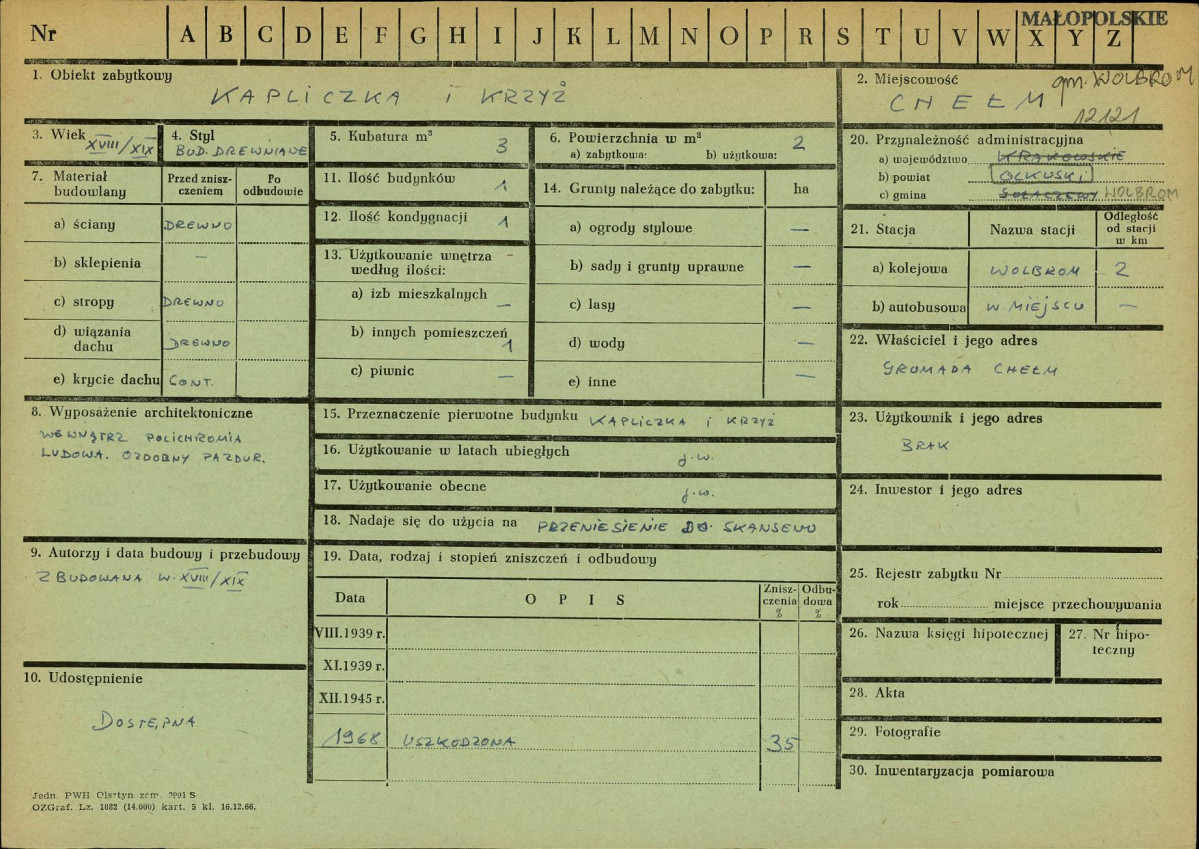 MAŁOPOLSKIE
Nr A B C D E F G H I J K L M N O P R S T U V W X Y Z
1. Obiekt zabytkowy
KAPLICZKA i KRZYŻ
2. Miejscowość
gm. WOLBROM
CHEŁM
12121
3. Wiek
XVIII/XIX
4. Styl
BUD. DREWNIANE
5. Kubatura m³ 3
6. Powierzchnia w m² 2
a) zabytkowa: b) użytkowa:
7. Materiał budowlany
Przed zniszczeniem
Po odbudowie
a) ściany DREWNO
b) sklepienia –
c) stropy DREWNO
d) wiązania dachu DREWNO
e) krycie dachu GONT.
8. Wyposażenie architektoniczne
WEWNĄTRZ POLICHROMIA
LUDOWA. OZDOBNY PAZDUR.
9. Autorzy i data budowy i przebudowy
ZBUDOWANA W. XVIII/XIX
10. Udostępnienie
DOSTĘPNA
11. Ilość budynków 1
12. Ilość kondygnacji 1
13. Użytkowanie wnętrza –
według ilości:
a) izb mieszkalnych –
b) innych pomieszczeń 1
c) piwnic –
14. Grunty należące do zabytku: ha
a) ogrody stylowe –
b) sady i grunty uprawne –
c) lasy –
d) wody –
e) inne –
15. Przeznaczenie pierwotne budynku KAPLICZKA i KRZYŻ
16. Użytkowanie w latach ubiegłych j.w.
17. Użytkowanie obecne j.w.
18. Nadaje się do użycia na PRZENIESIENIE DO SKANSENU
19. Data, rodzaj i stopień zniszczeń i odbudowy
Data
OPIS
Zniszczenia %
Odbudowa %
VIII.1939 r.
XI.1939 r.
XII.1945 r.
1968 USZKODZONA 35
20. Przynależność administracyjna
a) województwo KRAKOWSKIE
b) powiat OLKUSKI
c) gmina WOLBROM
21. Stacja
Nazwa stacji
Odległość
od stacji
w km
a) kolejowa WOLBROM 2
b) autobusowa W MIEJSCU –
22. Właściciel i jego adres
GROMADA CHEŁM
23. Użytkownik i jego adres
BRAK
24. Inwestor i jego adres
25. Rejestr zabytku Nr
rok miejsce przechowywania
26. Nazwa księgi hipotecznej
27. Nr hipoteczny
28. Akta
29. Fotografie
30. Inwentaryzacja pomiarowa
Jedn. PWH Olsztyn zam. 2991 S
OZGraf. Lz. 1882 (14.000) kart. 5 kl. 16.12.66.